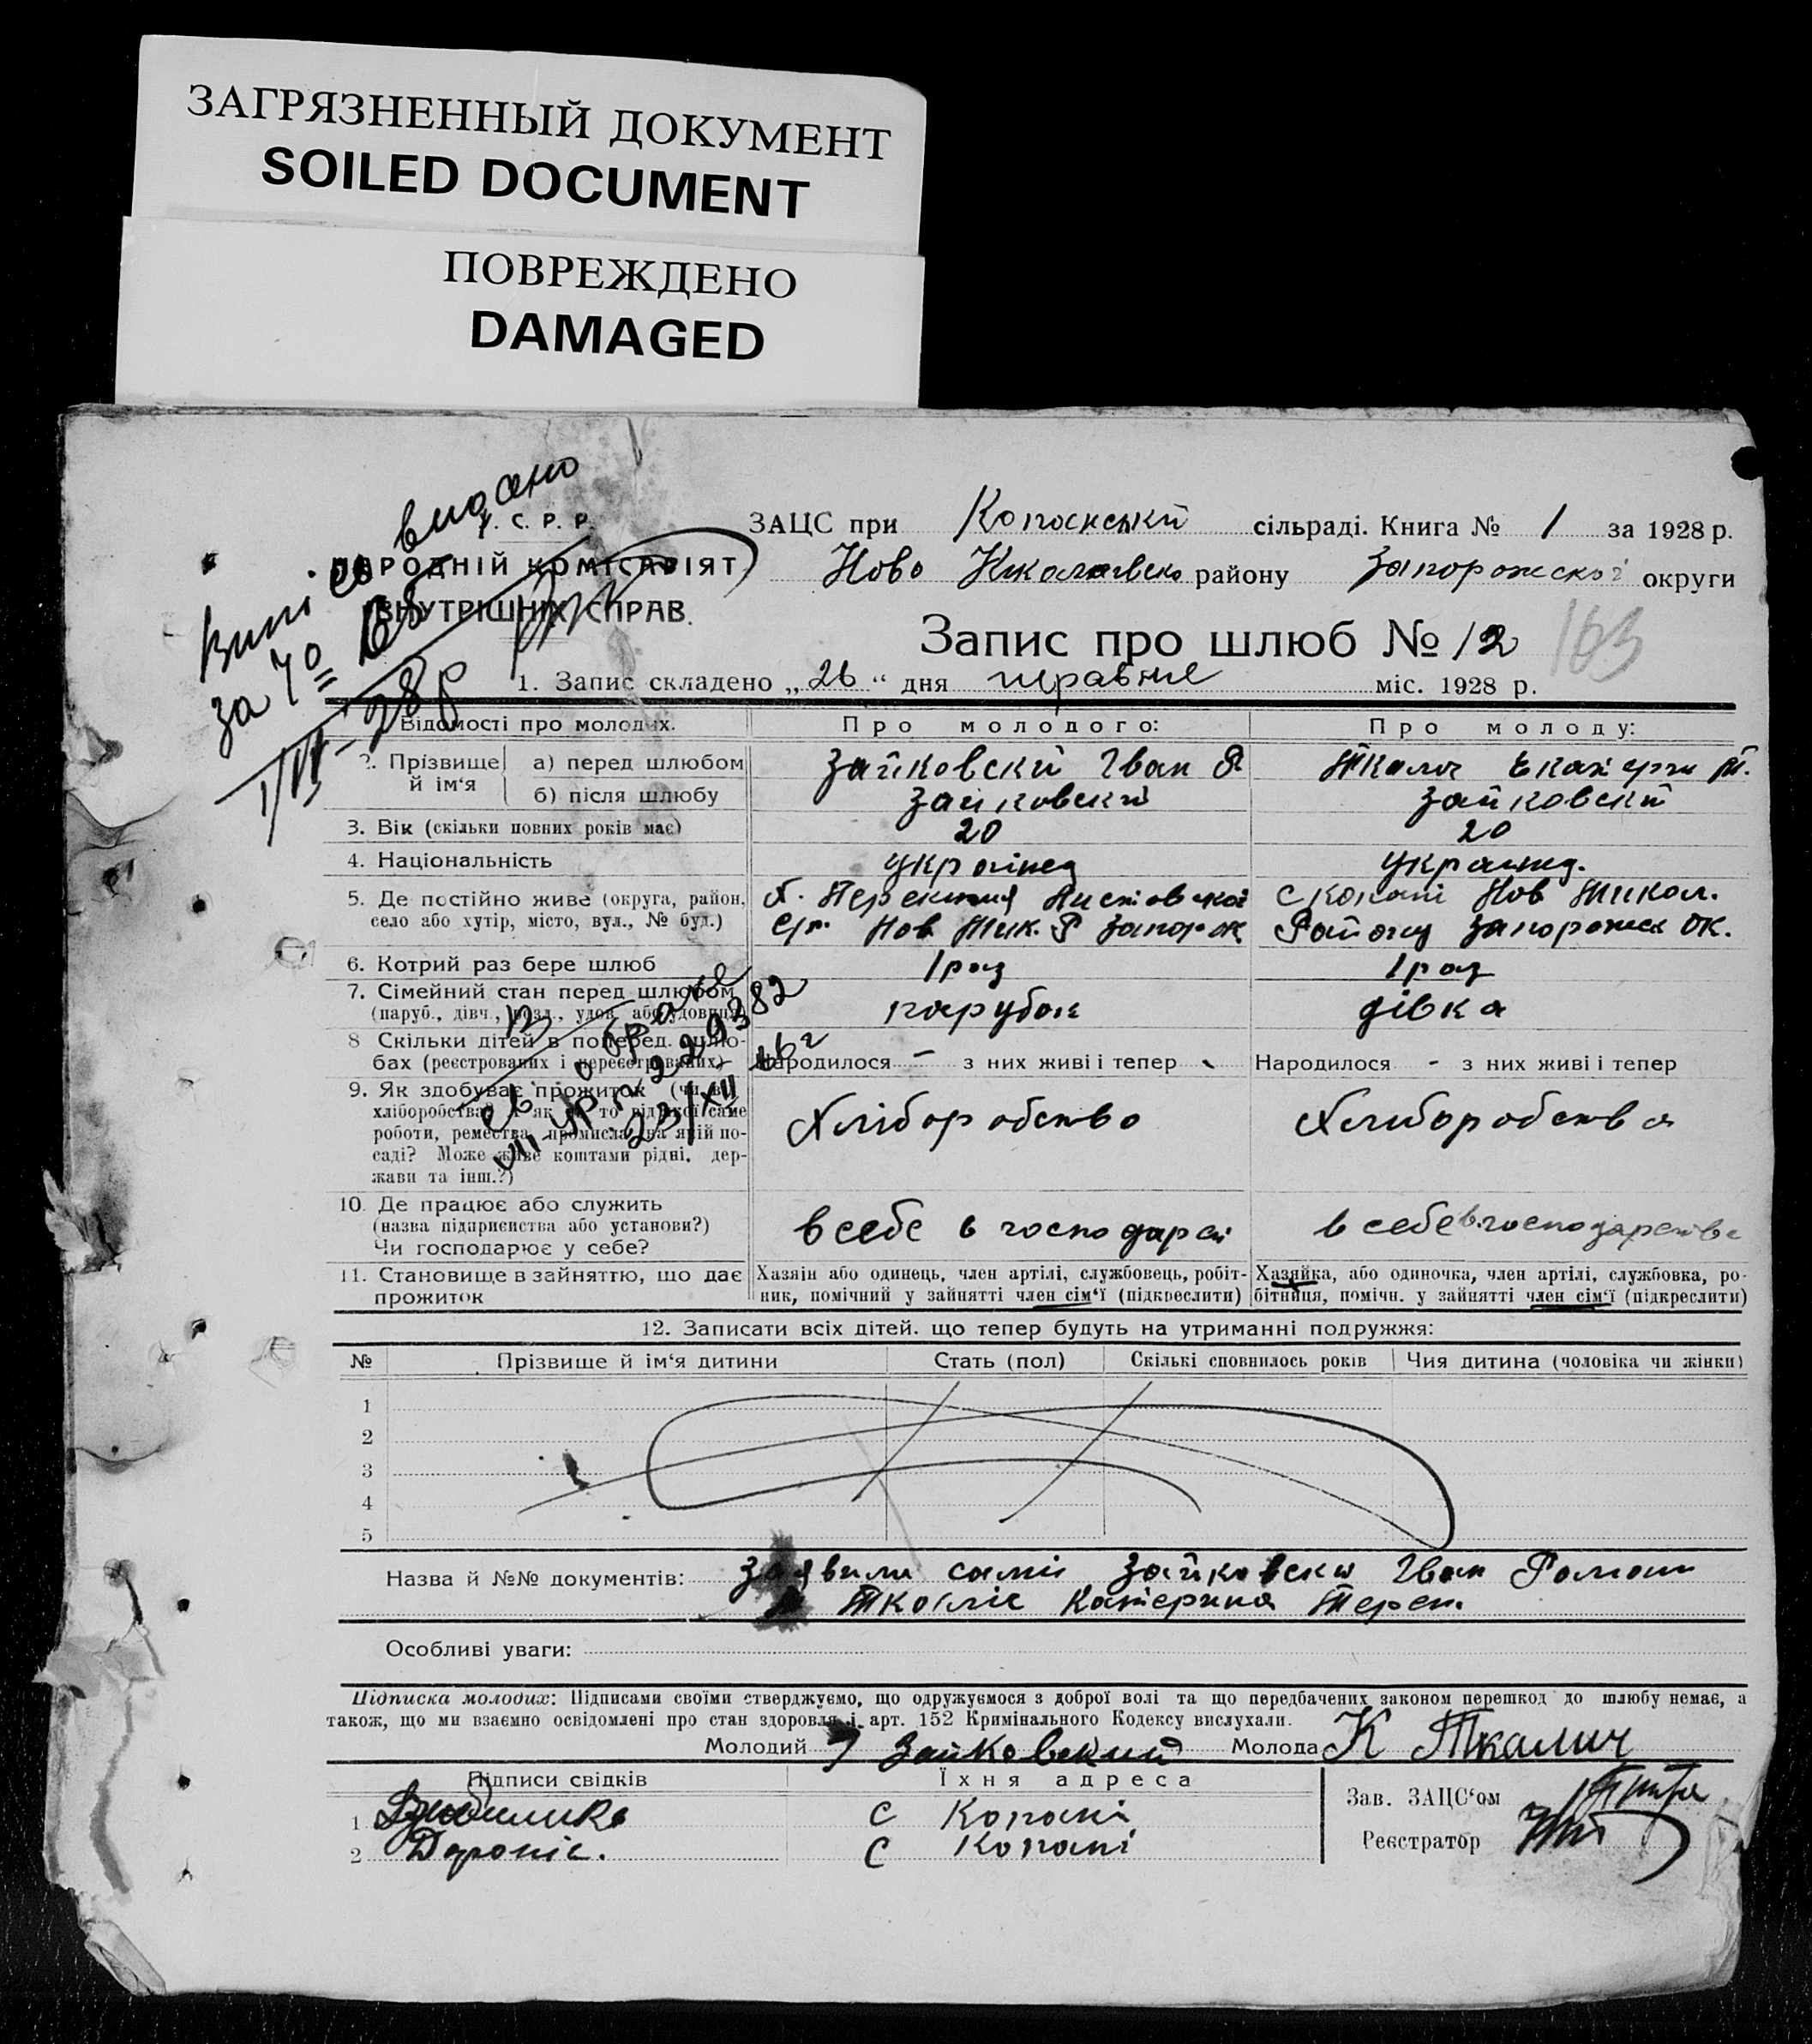 ЗАГРЯЗНЕННЫЙ ДОКУМЕНТ
SOILED DOCUMENT
ПОВРЕЖДЕНО
DAMAGED
У. С. Р. Р.
НАРОДНІЙ КОМІСАРІЯТ
ВНУТРІШНІХ СПРАВ.
видано
за
28 р
ЗАЦС при Копанський сільраді. Книга № 1 за 1928 р.
Ново району Запорожской округи
Запис про шлюб № 12
163
1. Запис складено „26“ дня травня міс. 1928 р.
Відомості про молодих. Про молодого: Про молоду:
2. Прізвище й ім‘я
а) перед шлюбом Зайковский Іван Р. Ткалич Т.
б) після шлюбу Зайковский Зайковский
3. Вік (скільки повних років має) 20 20
4. Національність українец украинец.
5. Де постійно живе (округа, район, село або хутір, місто, вул., № буд.)
с/р. Нов Ник. Р Запорож
с Копані Нов Никол.
Району Запорожск ок.
6. Котрий раз бере шлюб 1 раз 1 раз
7. Сімейний стан перед шлюбом (паруб., дівч., розл., удов. або удовиця) парубок дівка
8 Скільки дітей в поперед. шлюбах (реєстрованих і нереєстрованих)
Народилося - з них живі і тепер - Народилося - з них живі і тепер
9. Як здобуває прожиток (чи в хліборобства? А як ні, то від якої саме
роботи, ремества, промисла, на якій посаді? Може живе коштами рідні, держави та інш.?)
Хліборобство Хлиборобства
о браке
VII УР № 229382
23/XII
10. Де працює або служить
(назва підприємства або установи?)
Чи господарює у себе?
в себе в господарст в себе в господарстве
11. Становище в зайняттю, що дає прожиток
Хазяїн або одинець, член артілі, службовець, робітник, помічний у зайнятті член сім‘ї (підкреслити)
Хазяйка, або одиночка, член артілі, службовка, робітниця, помічн. у зайнятті член сім‘ї (підкреслити)
12. Записати всіх дітей. що тепер будуть на утриманні подружжя:
№ Прізвище й ім‘я дитини Стать (пол) Скількі сповнилось років Чия дитина (чоловіка чи жінки)
1
2
3
4
5
Назва й №№ документів: заявили самі Зайковски Іван Роман
Катерина Терен.
Особливі уваги:
Підписка молодих: Підписами своїми стверджуємо, що одружуємося з доброї волі та що передбачених законом перешкод до шлюбу немає, а
також, що ми взаємно освідомлені про стан здоровля і арт. 152 Кримінального Кодексу вислухали.
Молодий Зайковский Молода К Ткалич
Підписи свідків Їхня адреса
1 с Копані
2 с Копані
Зав. ЗАЦС‘ом
Реєстратор